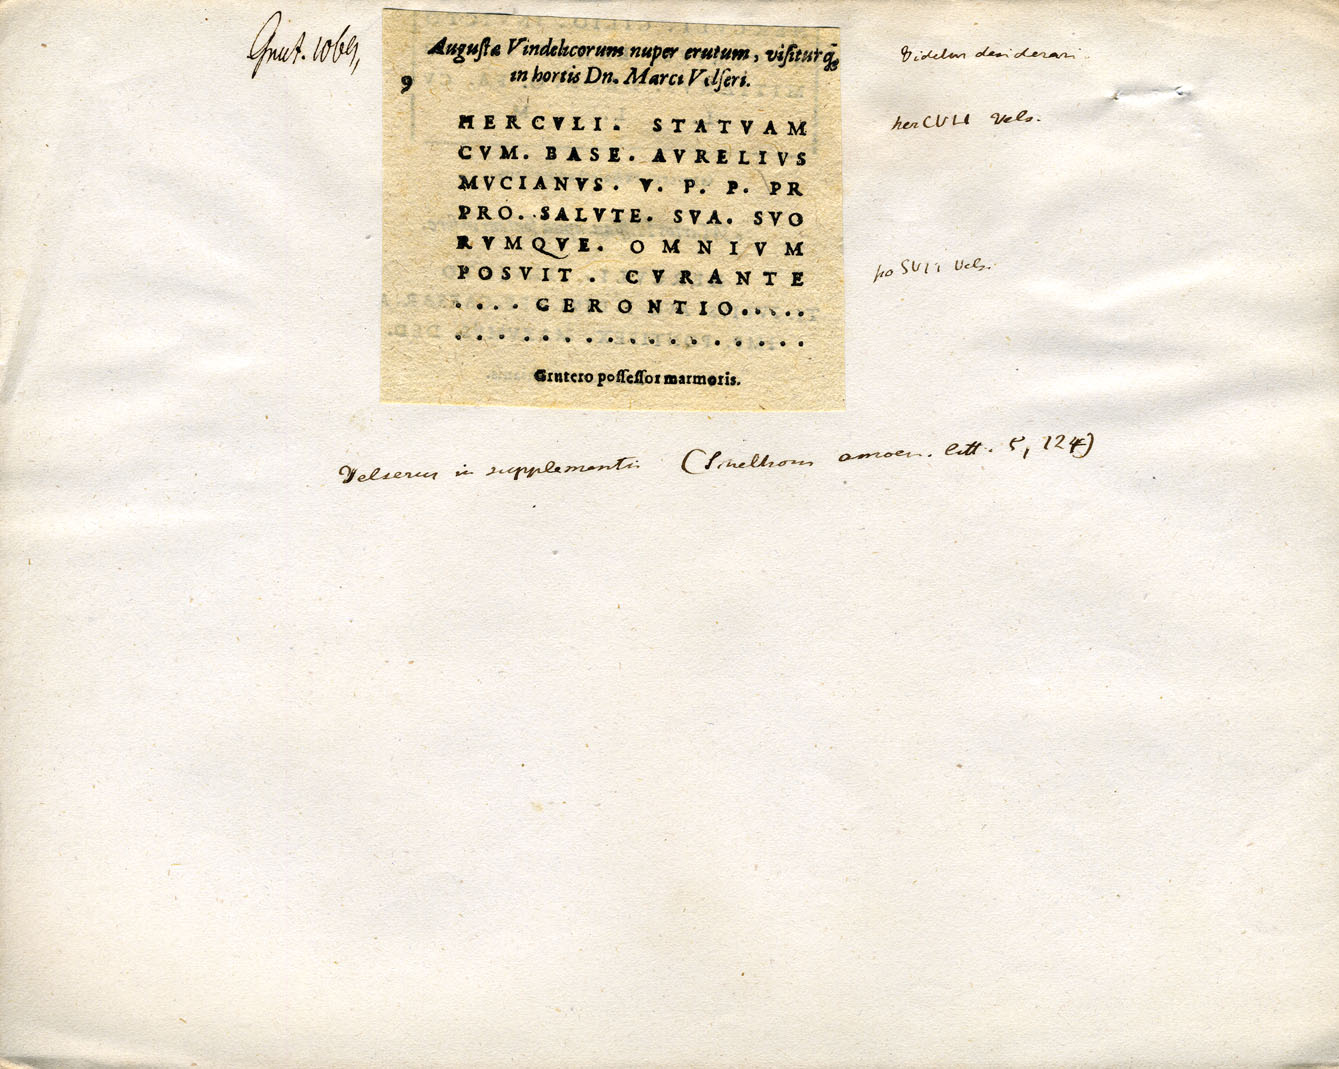 Grut. 1064,
Augustæ Vindelicorum nuper erutum, visiturq̃;
in hortis Dn. Marci Velseri.
9
HERCVLI. STATVAM
CVM. BASE. AVRELIVS
MVCIANVS. V. P. P. PR
PRO. SALVTE. SVA. SVO
RVMQVE. OMNIVM
POSVIT. CVRANTE
....GERONTIO.....
................
Grutero possessor marmoris.
Videtur desiderari.
herCULI Vels.
poSUIT Vels.
Velserus in supplementis (Schelhorn amoen. litt. 5, 124)